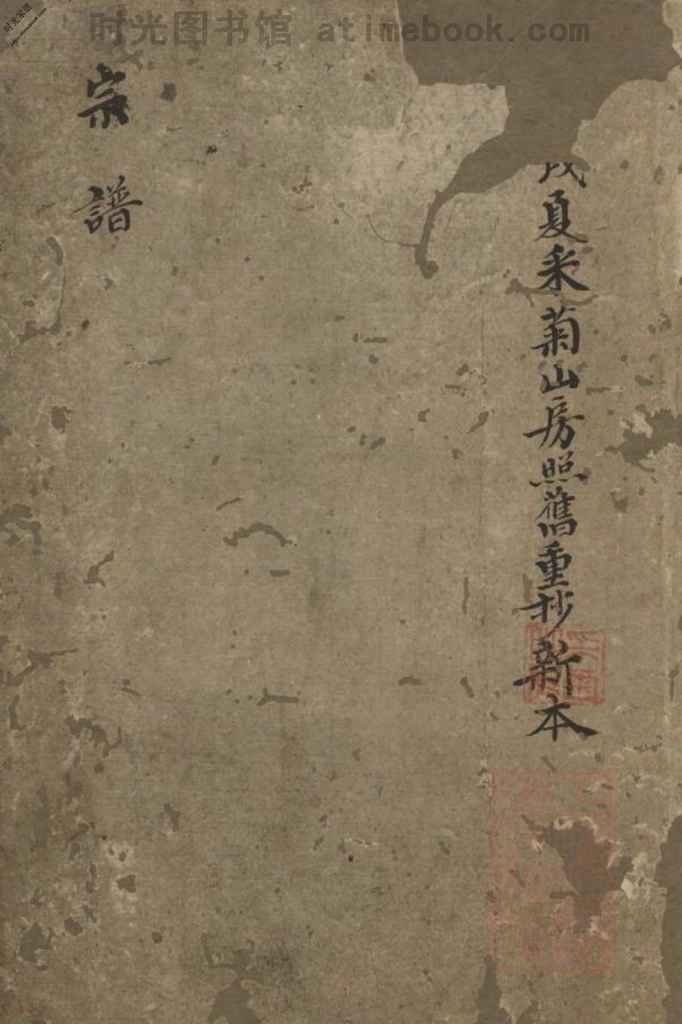 时光图书馆 atimebook.com
戊夏采菊山房照舊重抄新本
宗譜